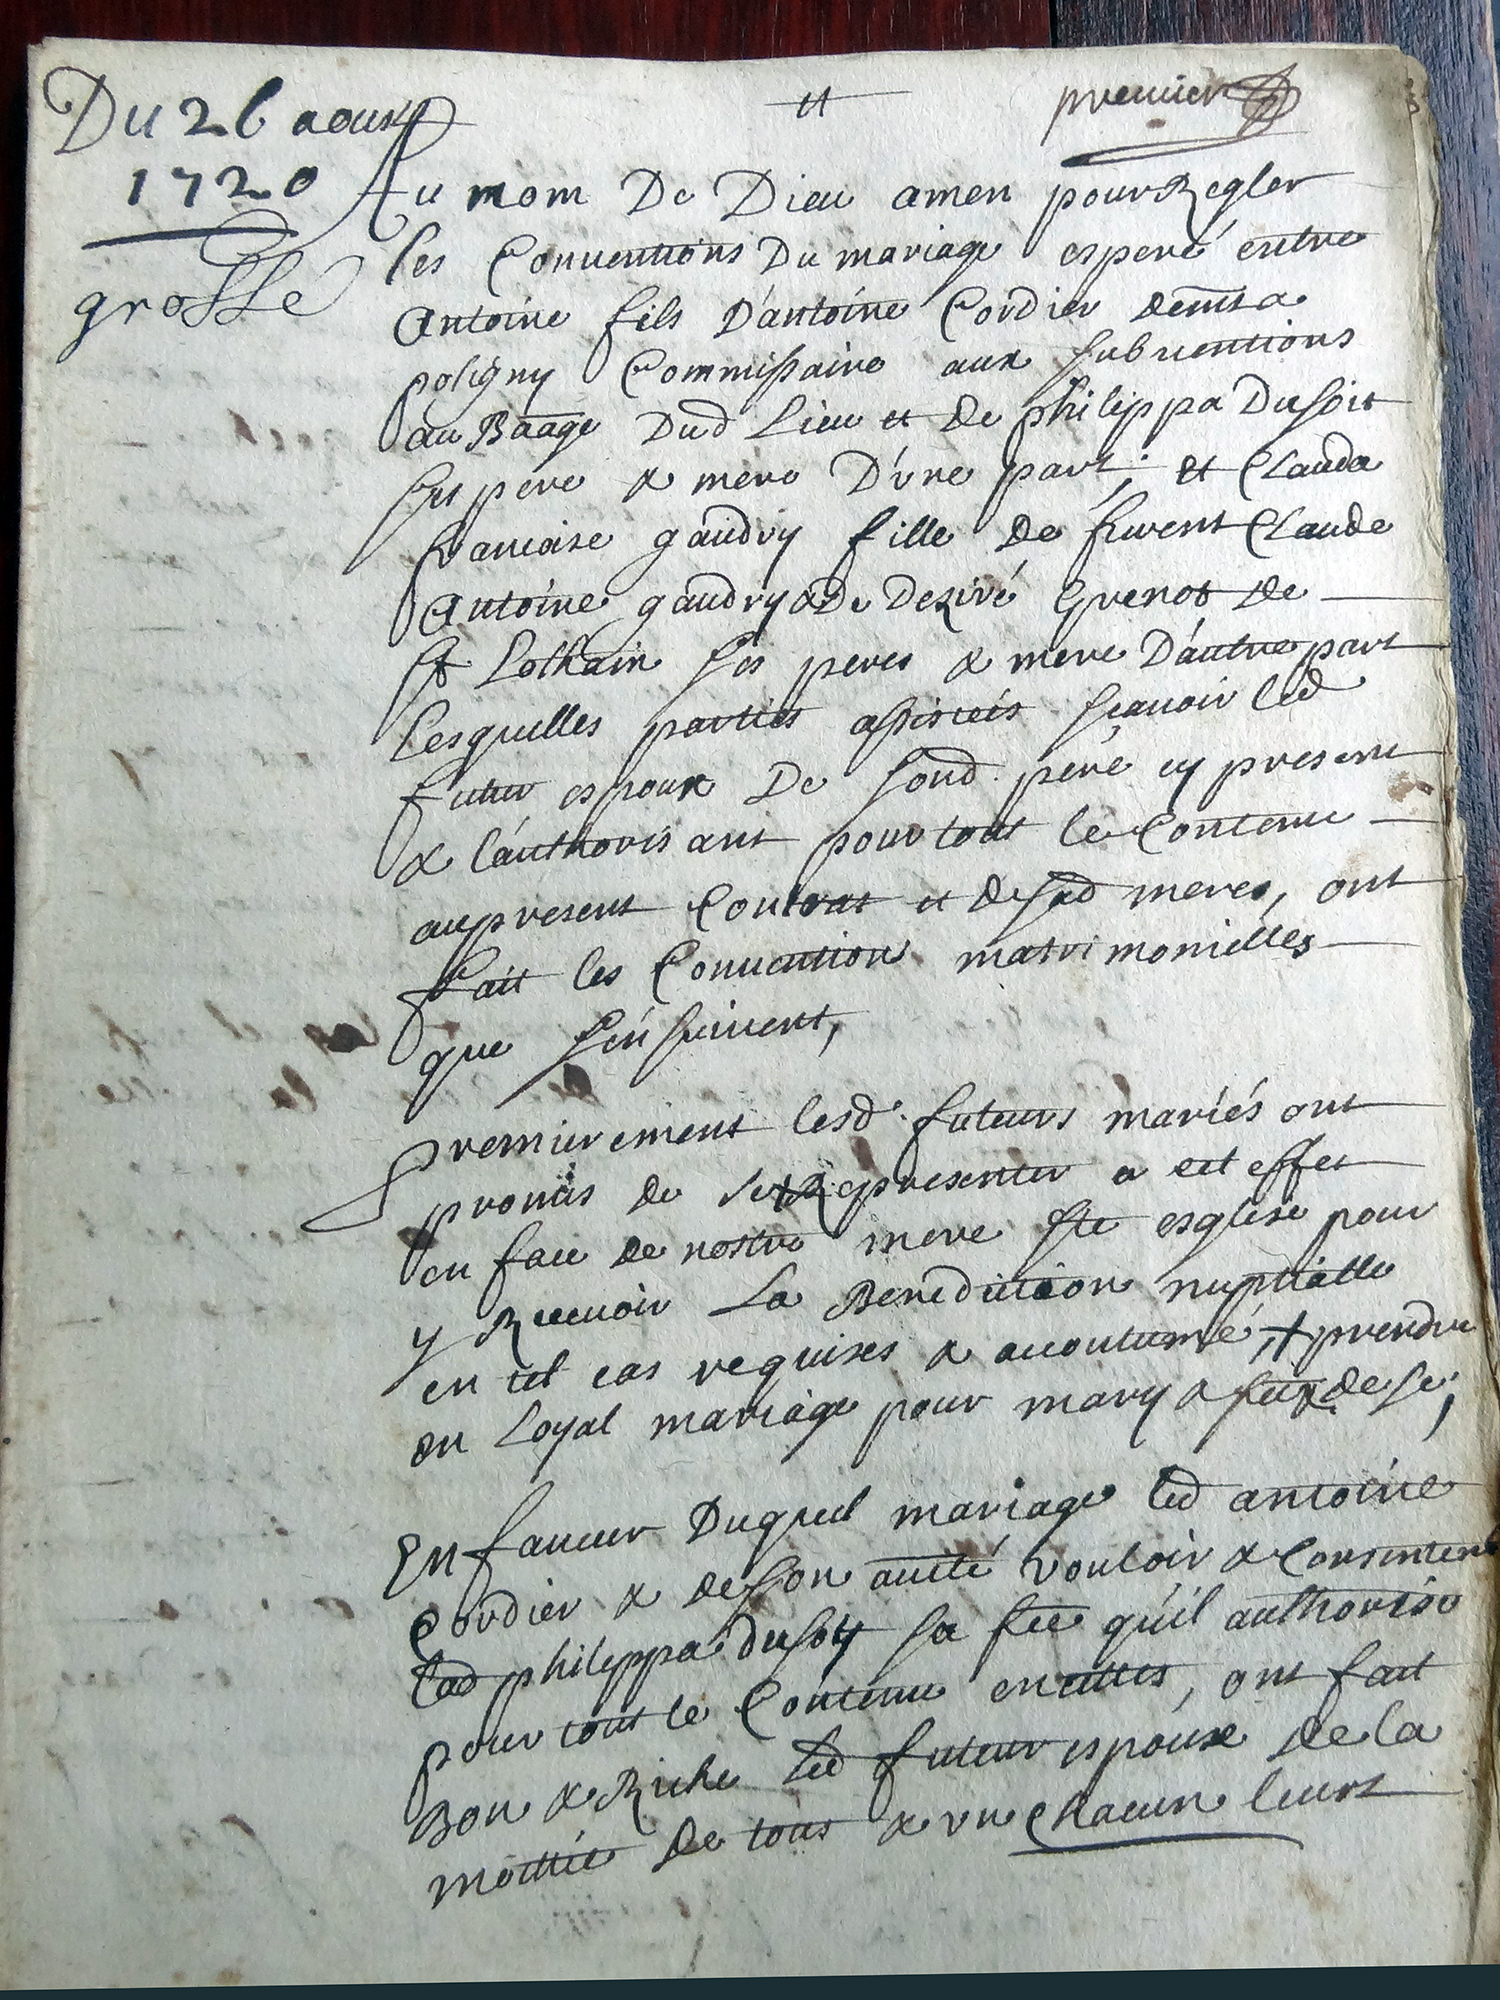 Du 26 aoust
1720
grosse
et
premier
Au nom De Dieu amen pour Regler
les Conuentions Du mariage esperé entre
Antoine fils D'antoine Cordier dem.t a
poligny Commissaire aux subuentions
au Baage Dud Lieu et de philippa Dusoit
ses pere & mere D'vne part; et Clauda
francoise gaudry fille de furent Claude
Antoine gaudry & De Deziré Grenot de
St Lothain ses peres & mere D'autre part
Lesquelles parties assisteés scauoir led
futur espoux De sond. pere cy present
& l'authorisant pour tout le Contenu
au present Contrat et de sad mere, ont
fait les Conuention matrimonielles
que s'en suiuent,
Premierement lesd. futeurs mariés ont
promis de se Representer a cet effet
en face de nostre mere ste esglise pour
y Receuoir La Benediction nuptialle
en tel cas requises & accoutumé, + prendre
en Loyal mariage pour mary &
En faueur Duquel mariage led antoine
Cordier & de son autté vouloir & Consentent
lad philippa dusoy sa fee qu'il authorise
pour tout le Contenu en cettes, ont fait
Bon & Riche led futeur espoux de la
moittié de tous & vn chacun leurs